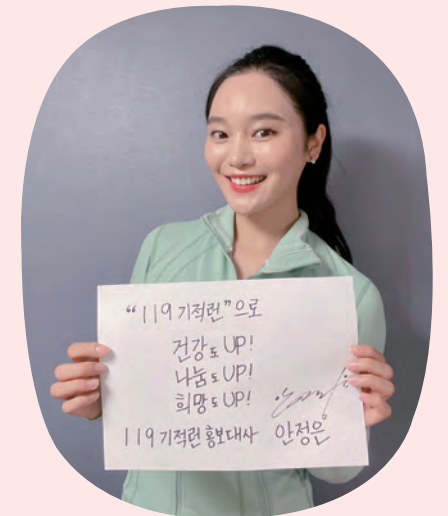 “119 기적런”으로
건강도 UP!
나눔도 UP!
희망도 UP!
119 기적런 홍보대사 안정은